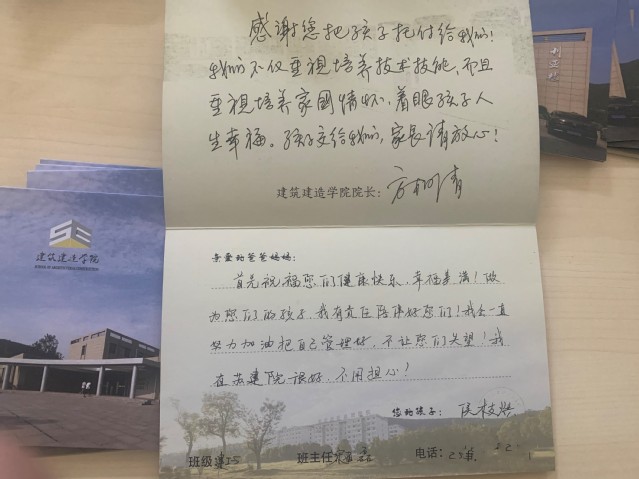 感谢您把孩子托付给我们!
我们不仅重视培养技术技能,而且
重视培养家國情怀,着眼孩子人
生幸福。孩子交给我们,家长请放心!
建筑建造学院院长:
建筑建造学院
亲爱的爸爸妈妈:
首先祝福您们健康快乐,幸福美满!做
为您们的孩子,我有责任陪伴好您们!我会一直
努力加油把自己管理好,不让您们失望!我
在苏建院很好,不用担心!
您的孩子:
班级
班主任
电话: